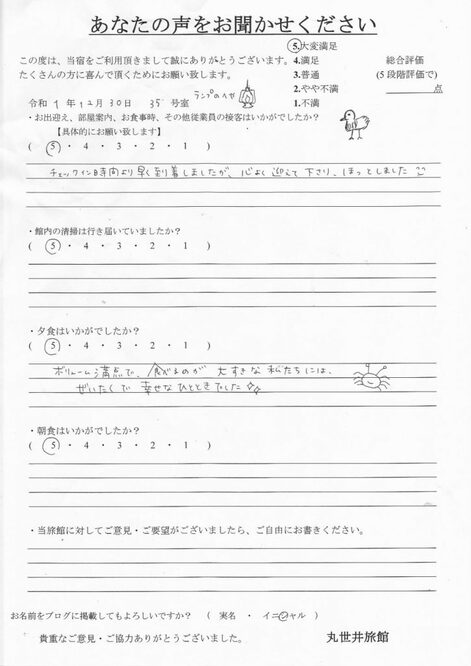 あなたの声をお聞かせください
この度は、当宿をご利用頂きまして誠にありがとうございます。
たくさんの方に喜んで頂くためにお願い致します。
5.大変満足
4.満足
3.普通
2.やや不満
1.不満
総合評価
(5段階評価で)
点
令和 1年 12月 30日 35号室 ランプのヘヤ
・お出迎え、部屋案内、お食事時、その他従業員の接客はいかがでしたか?
【具体的にお願い致します】
( 5 ・ 4 ・ 3 ・ 2 ・ 1 )
チェックイン時間より早く到着しましたが、心よく迎えて下さり、ほっとしました
・館内の清掃は行き届いていましたか?
( 5 ・ 4 ・ 3 ・ 2 ・ 1 )
・夕食はいかがでしたか?
( 5 ・ 4 ・ 3 ・ 2 ・ 1 )
ボリュームう満点で、食べるのが 大すきな 私たちには、
ぜいたくで 幸せなひとときでした☆☆
・朝食はいかがでしたか?
( 5 ・ 4 ・ 3 ・ 2 ・ 1 )
・当旅館に対してご意見・ご要望がございましたら、ご自由にお書きください。
お名前をブログに掲載してもよろしいですか? ( 実名 ・ イニシャル )
貴重なご意見・ご協力ありがとうございました。
丸世井旅館